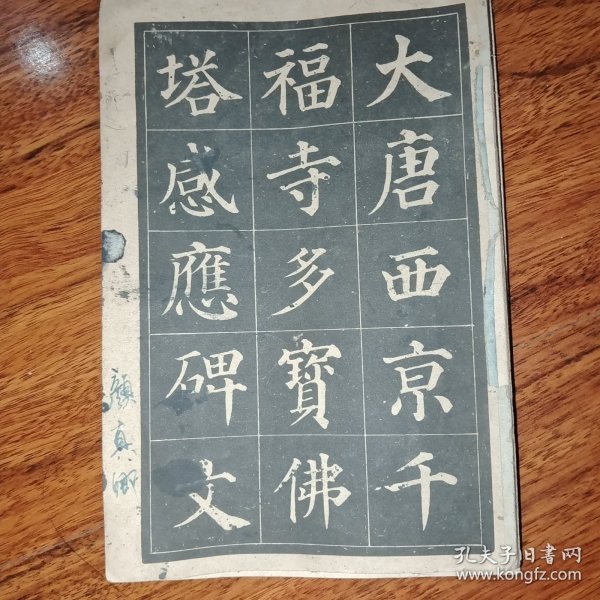 大唐西京千
福寺多寶佛
塔感應碑文
顏真卿
孔夫子旧書网
www.kongfz.com